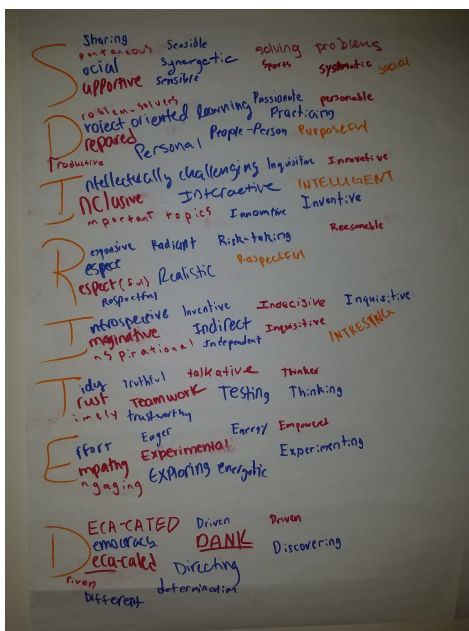 Sharing
Spontaneous Sensible solving problems
Social Synergetic Sports systematic social
Supportive sensible
Problem-solvers Passionate personable
Project oriented learning Practicing
Prepared Personal People-Person Purposeful
Productive
Intellectually challenging Inquisitive Innovative
Inclusive Interactive INTELLIGENT
Important topics Innovative Inventive
Responsive Radiant Risk-taking Reasonable
Respect
Respect(ful) Realistic Respectful
Respectful
Introspective Inventive Indecisive Inquisitive
Imaginative Indirect Inquisitive INTRESTING
Inspirational Independent
Tidy Truthful talkative Thinker
Trust Teamwork Testing Thinking
Timely trustworthy
Effort Eager Energy Empowered
Empathy Experimental Experimenting
Engaging Exploring energetic
DECA-CATED Driven Driven
Democracy DANK Discovering
Deca-cated Directing
Driven
Different determination